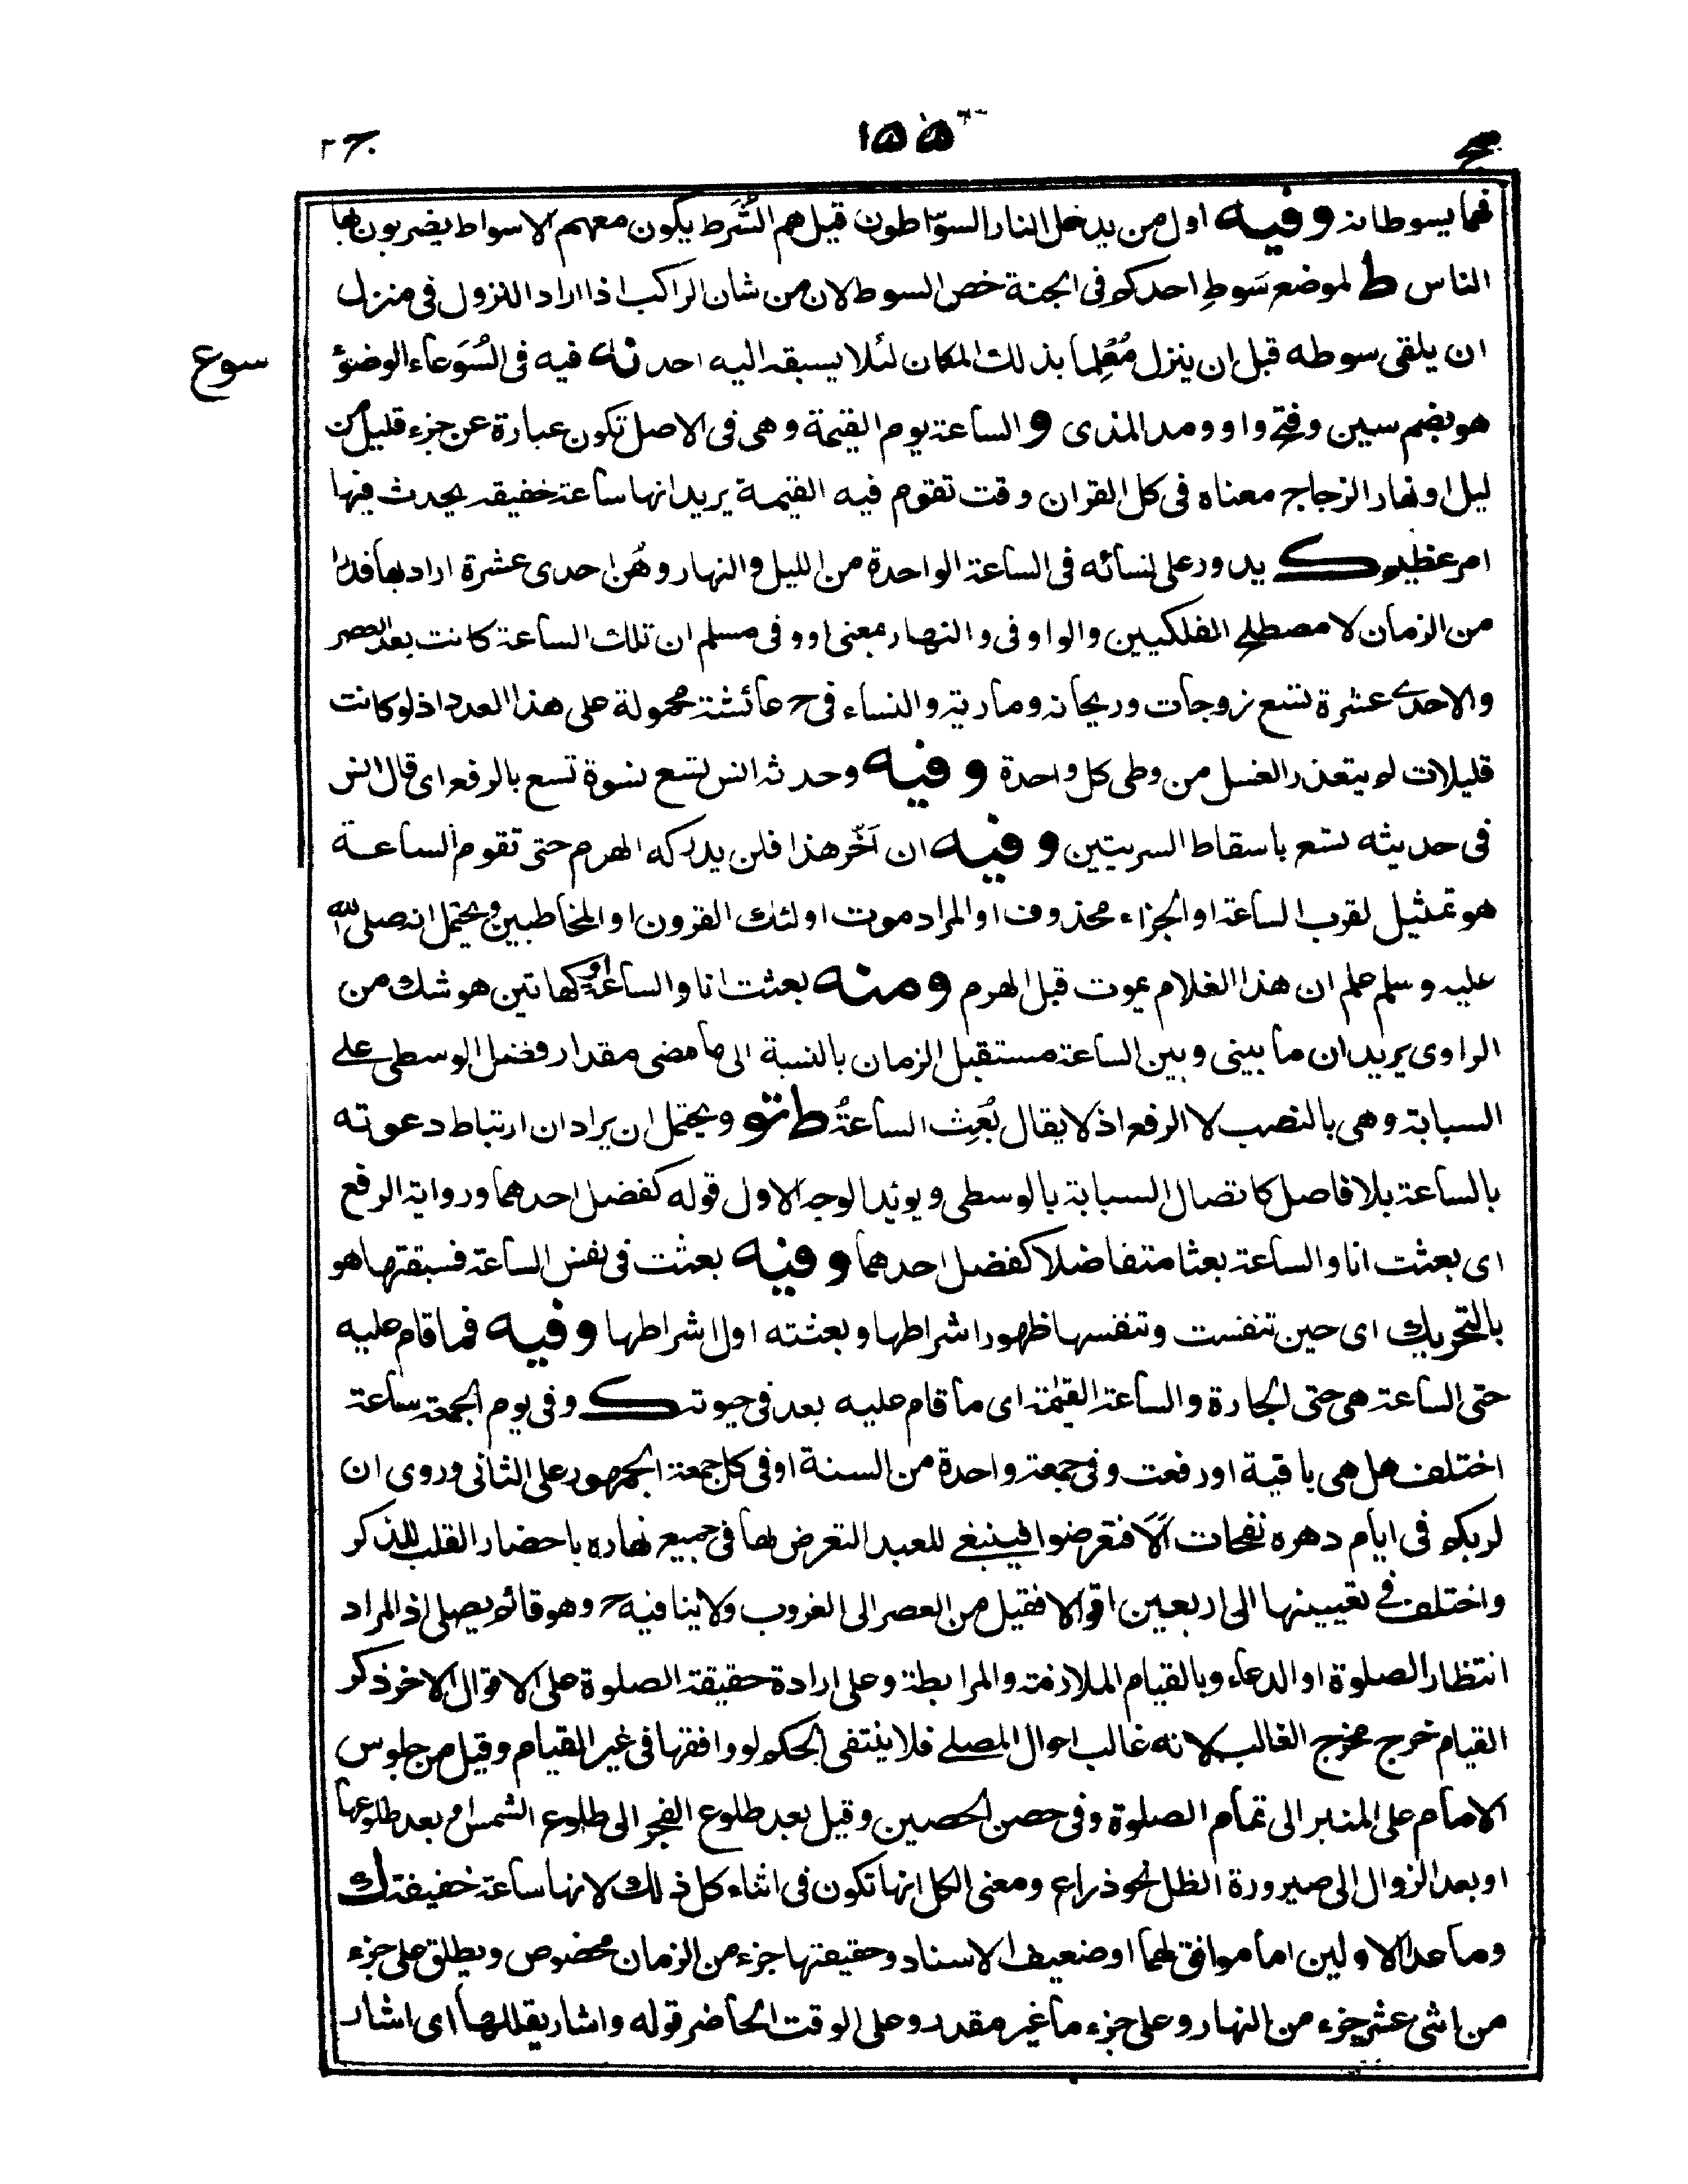 ج ٢
١٥٥
مج
فهما يسوطانه وفيه اول من يدخل النار السوّاطون قيل هم الشُّرَط يكون معهم الاسواط يضربون بها
الناس ط لموضع سَوطِ احدكم فى الجنة خص السوط لان من شان الراكب اذا اراد النزول فى منزل
ان يلقى سوطه قبل ان ينزل مُعْلِما بذلك المكان لئلا يسبقه اليه احد نه فيه فى السُوَعاء الوضوُ
سوع
هو بضم سين وفتح واو ومد المذى و الساعة يوم القيٰمة وهى فى الاصل تكون عبارة عن جزء قليل من
ليل او نهار الزجاج معناه فى كل القران وقت تقوم فيه القيٰمة يريد انها ساعة خفيفة يحدث فيها
امر عظيم ك يدور على نسائه فى الساعة الواحدة من الليل والنهار وهُن احدى عشرة اراد بها قدرا
من الزمان لا مصطلح الفلكيين والواو فى والنهار بمعنى او وفى مسلم ان تلك الساعة كانت بعد العصر
والاحدى عشرة تسع زوجات وريحانة ومارية والنساء فى ح عائشة محمولة على هذا العدد اذ لو كانت
قليلات لم يتعذر الغسل من وطى كل واحدة وفيه وحدثه انس تسع نسوة تسع بالرفع اى قال انس
فى حديثه تسع باسقاط السريتين وفيه ان اَخّر هذا فلن يدركه الهرم حتى تقوم الساعة
هو تمثيل لقرب الساعة او الجزاء محذوف او المراد موت اولئك القرون او المخاطبين ويحتمل انه صلى الله
عليه وسلم علم ان هذا الغلام يموت قبل الهرم ومنه بعثت انا والساعة او كهاتين هو شك من
الراوى يريد ان ما بينى وبين الساعة مستقبل الزمان بالنسبة الى ما مضى مقدار فضل الوسطى على
السبابة وهى بالنصب لا الرفع اذ لا يقال بُعِث الساعةُ ط تو ويحتمل ان يراد ان ارتباط دعوته
بالساعة بلا فاصل كاتصال السبابة بالوسطى ويويد الوجه الاول قوله كفضل احدهما ورواية الرفع
اى بعثت انا والساعة بعثا متفاضلا كفضل احدهما وفيه بعثت فى نفس الساعة فسبقتها هو
بالتحريك اى حين تنفست وتنفسها ظهور اشراطها وبعثته اول اشراطها وفيه فما قام عليه
حتى الساعة هى حتى الجارة والساعة القيٰمة اى ما قام عليه بعد فى حيوته ك وفى يوم الجمعة ساعة
اختلف هل هى باقية او رفعت وفى جمعة واحدة من السنة او فى كل جمعة الجمهور على الثانى وروى ان
لربكم فى ايام دهره نفحات اَلَا فتعرضوا فينبغى للعبد التعرض لها فى جميع نهاره باحضار القلب للذكر
واختلف فى تعيينها الى اربعين اقوالا فقيل من العصر الى الغروب ولا ينافيه ح وهو قائم يصلى اذ المراد
انتظار الصلوة او الدعاء وبالقيام الملازمة والمرابطة وعلى ارادة حقيقة الصلوة على الاقوال الاخر ذكر
القيام خرج مخرج الغالب لانه غالب احوال المصلى فلا ينتفى الحكم لو وافقها فى غير القيام وقيل من جلوس
الامام على المنبر الى تمام الصلوة وفى حصن الحصين وقيل بعد طلوع الفجر الى طلوع الشمس او بعد طلوعها
او بعد الزوال الى صيرورة الظل نحو ذراع ومعنى الكل انها تكون فى اثناء كل ذلك لانها ساعة خفيفة ك
وما عدا الاولين اما موافق لهما او ضعيف الاسناد وحقيقتها جزء من الزمان مخصوص ويطلق على جزء
من اثنى عشر جزء من النهار وعلى جزء ما غير مقدر وعلى الوقت الحاضر قوله واشار يقللها اى اشار